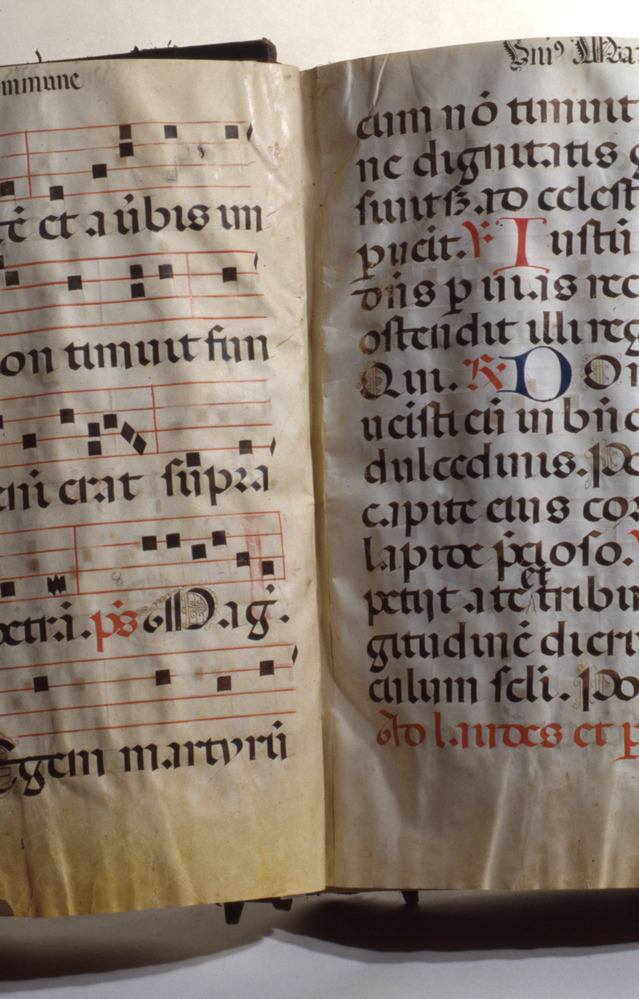 mmune
tē et a ūbis im
on timuit fun
erat sup̄ra
petrā. p̄s Mag̃.
Egem martyrū
Vniꝰ Mar
cum nō timuit
ne dignitatis
ad celest
puēit. ℣ Iusti
dn̄s p uias rec
ostendit illi reg
Qui. ℟ D Oi
uēisti eū in bn̄d
dulcedinis. Po
capite eius cor
lapide p̄cioso. ℣
petijt a te et tribu
gitudinē dieru
culum sc̄li. Po
Ad laudes et p